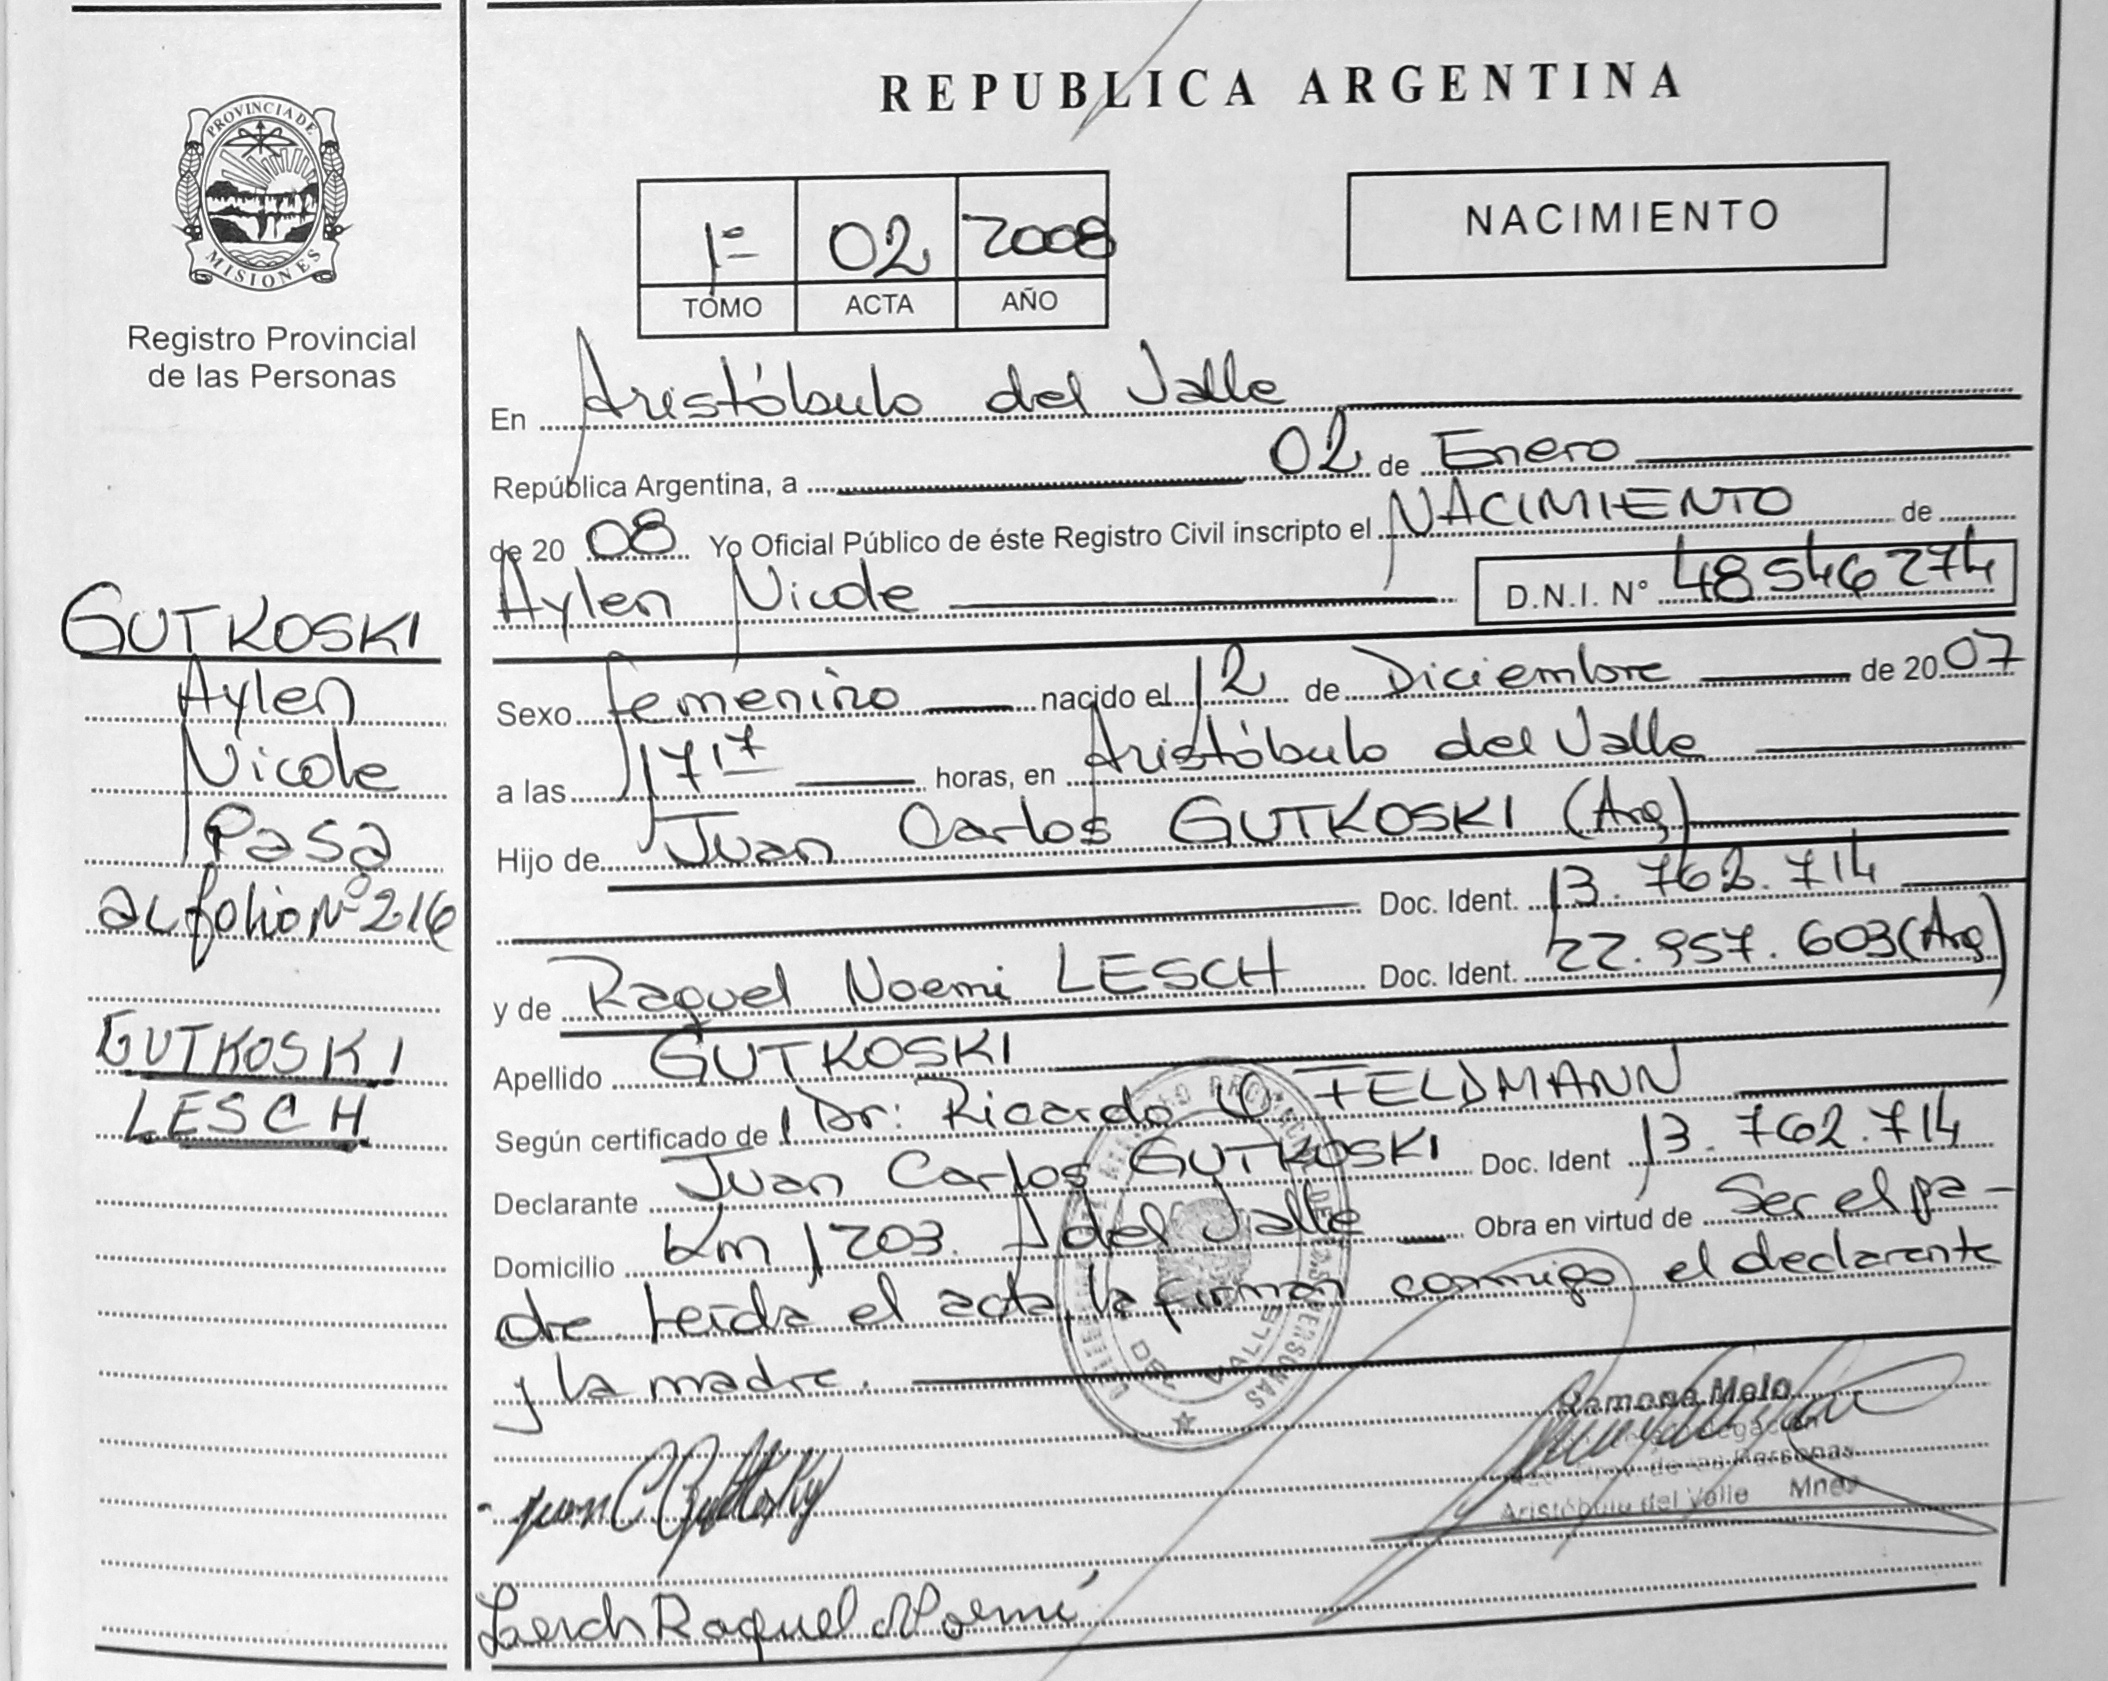 PROVINCIA DE
MISIONES
Registro Provincial
de las Personas
GUTKOSKI
Aylen
Nicole
Pasa
al folio Nº 216
GUTKOSKI
LESCH
REPUBLICA ARGENTINA
1º 02 2008
TOMO ACTA AÑO
NACIMIENTO
En Aristóbulo del Valle
República Argentina, a 02 de Enero
de 20 08 Yo Oficial Público de éste Registro Civil inscripto el NACIMIENTO de
Aylen Nicole D.N.I. Nº 48546274
Sexo femenino nacido el 12 de Diciembre de 20 07
a las 17 17 horas, en Aristóbulo del Valle
Hijo de Juan Carlos GUTKOSKI (Arg)
Doc. Ident. 13.762.714
y de Raquel Noemi LESCH Doc. Ident. 22.957.603 (Arg)
Apellido GUTKOSKI
Según certificado de Dr: Ricardo O FELDMANN
Declarante Juan Carlos GUTKOSKI Doc. Ident 13.762.714
Domicilio Km 1203. A del Valle Obra en virtud de Ser el pa-
dre Leída el acta, la firman conmigo el declarante
y la madre.
DEL VALLE
DE LAS PERSONAS
Ramona Melo
Delegación
Prov. de las Personas
Aristóbulo del Valle Mnes
Juan C Gutkoski
Lesch Raquel Noemí